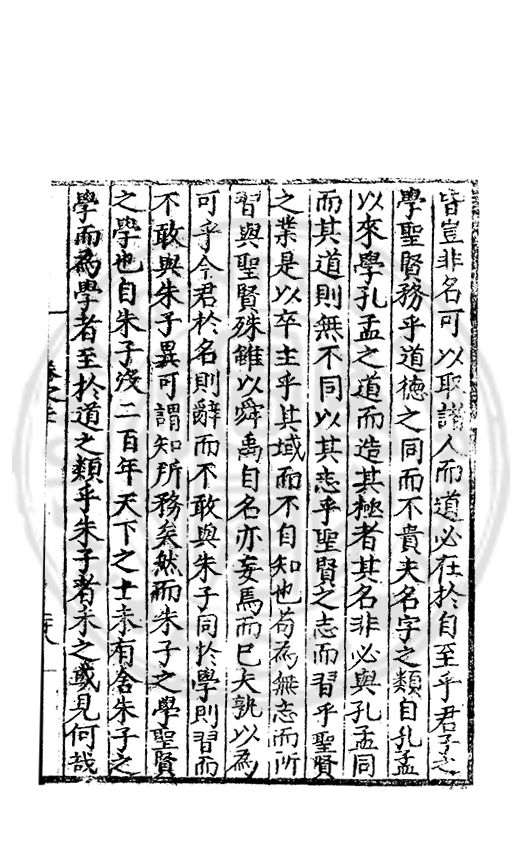 皆豈非名可以取諸人而道必在於自至乎君子之
學聖賢務乎道德之同而不貴夫名字之類自孔孟
以來學孔孟之道而造其極者其名非必與孔孟同
而其道則無不同以其志乎聖賢之志而習乎聖賢
之業是以卒主乎其域而不自知也苟為無志而所
習與聖賢殊雖以舜禹自名亦妄焉而已夫孰以為
可乎今君於名則辭而不敢與朱子同於學則習而
不敢與朱子異可謂知所務矣然而朱子之學聖賢
之學也自朱子沒二百年天下之士未有舍朱子之
學而為學者至於道之類乎朱子者未之或見何哉
卷之